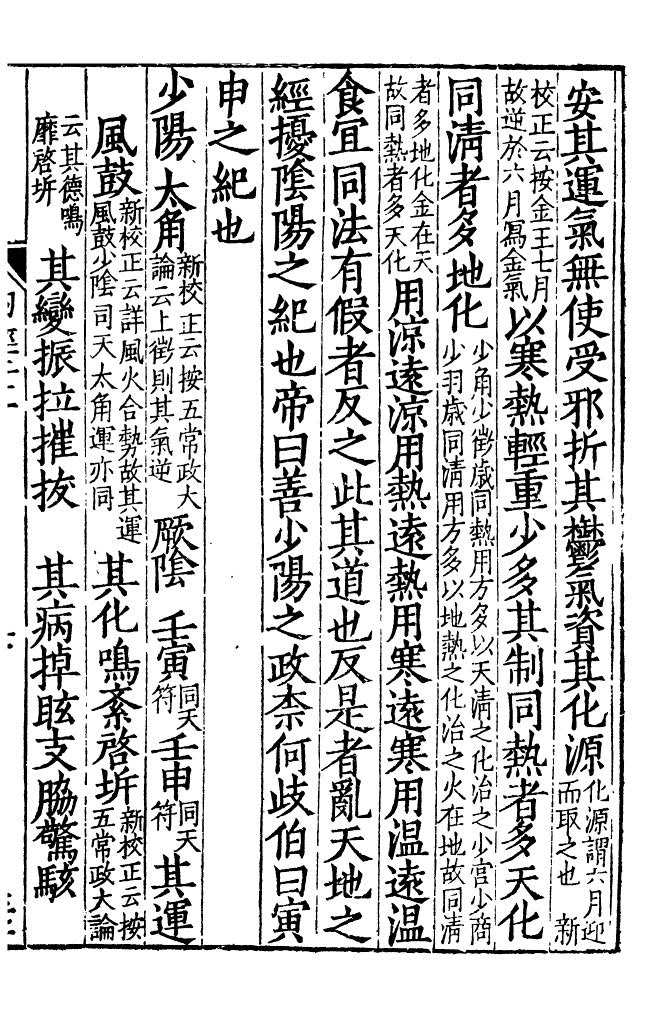 安其運氣無使受邪折其鬱氣資其化源化源謂六月迎而取之也 新
校正云按金王七月故逆於六月寫金氣以寒熱輕重少多其制同熱者多天化
同清者多地化少角少徵歲同熱用方多以天清之化治之少宮少商少羽歲同清用方多以地熱之化治之火在地故同清
者多地化金在天故同熱者多天化用涼遠涼用熱遠熱用寒遠寒用温遠温
食宜同法有假者反之此其道也反是者亂天地之
經擾陰陽之紀也帝曰善少陽之政柰何歧伯曰寅
申之紀也
少陽 太角新校正云按五常政大論云上徵則其氣逆 厥陰 壬寅同天符 壬申同天符 其運
風鼓新校正云詳風火合勢故其運風鼓少陰司天太角運亦同 其化鳴紊啓坼新校正云按五常政大論
云其德鳴靡啓坼 其變振拉摧拔 其病掉眩支脇驚駭